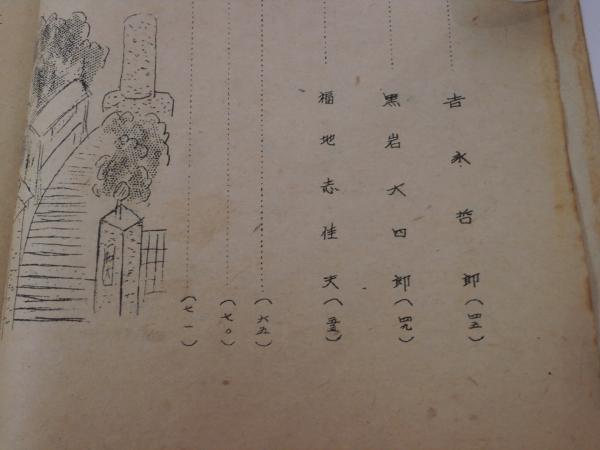 吉永哲郎(四五)
黒岩大四郎(四九)
福地志佳夫(五五)
(六五)
(七〇)
(七一)